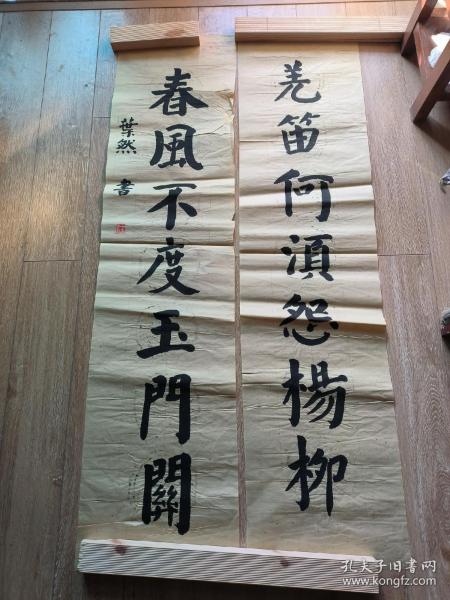 羌笛何湏怨楊柳
春風不度玉門關
葉然 書
孔夫子旧书网
www.kongfz.com